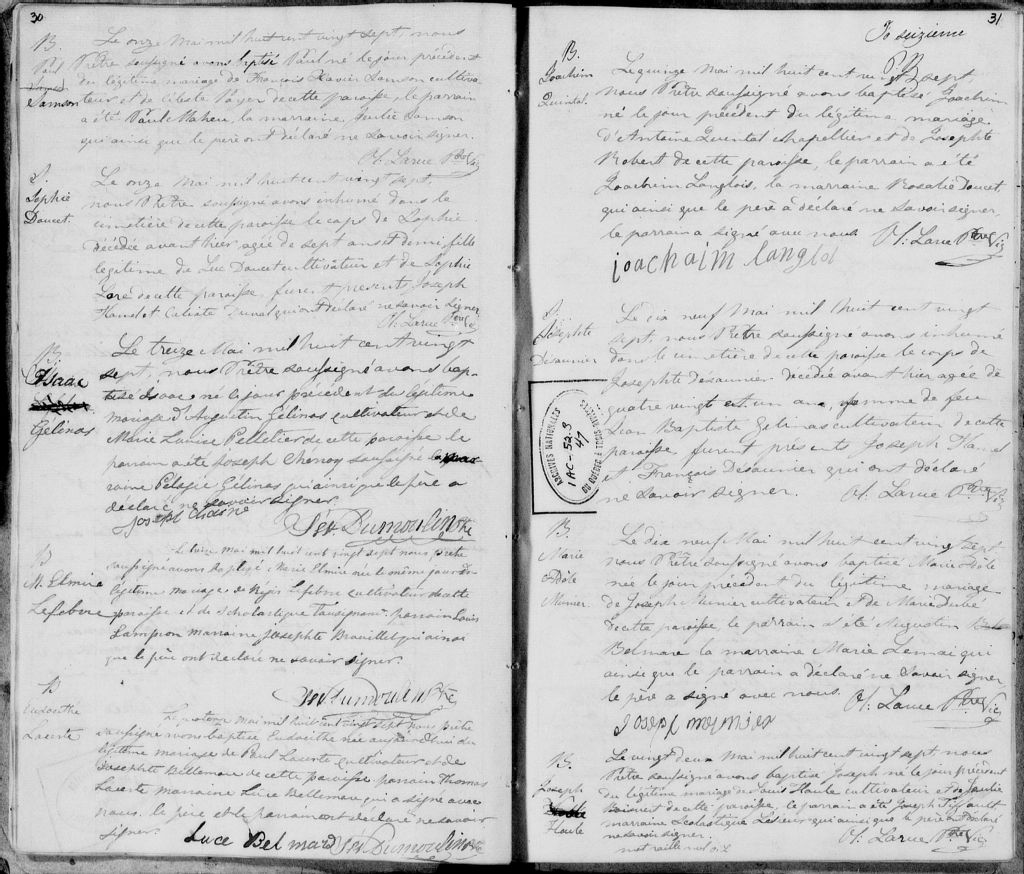 30
B.
Paul
Samson
Le onze Mai mil huit cent vingt sept, nous
Prêtre soussigné avons baptisé Paul né le jour précédent
du légitime mariage de François Xavier Samson cultiva
teur et de Céleste Payer de cette paroisse, le parrain
a été Paul Maheu, la marraine Julie Samson
qui ainsi que le père ont déclaré ne savoir signer.
Ol. Larue Ptre Vic
S.
Sophie
Doucet
Le onze Mai mil huit cent vingt sept,
nous Prêtre soussigné avons inhumé dans le
cimetière de cette paroisse le corps de Sophie
décédée avant hier agée de sept ans et demi, fille
légitime de Luc Doucet cultivateur et de Sophie
Laré de cette paroisse, furent présents Joseph
qui ont déclaré ne savoir signer
Ol. Larue Ptre Vic
B.
Isaac
Gélinas
Le treize Mai mil huit cent vingt
sept, nous Prêtre soussigné avons bap-
tisé Isaac né le jour précédent du légitime
mariage d'Augustin Gélinas cultivateur et de
Marie Louise Pelletier de cette paroisse le
parrain a été Joseph Chénay soussigné la mar
raine Pélagie Gélinas qui ainsi que le père a
déclaré ne savoir signer
Joseph
Sév. Dumoulin Ptre
B
M. Elmire
Lefebvre
Le treize mai mil huit cent vingt sept nous prêtre
soussigné avons baptisé Marie Elmire née le même jour du
légitime mariage de Régis Lefebvre cultivateur de cette
paroisse et de Scholastique parrain Louis
Lampron marraine Josephte Brouillet qui ainsi
que le père ont déclaré ne savoir signer.
Sév Dumoulin Ptre
B
Eudoxithe
Lacerte
Le quatorze mai mil huit cent vingt sept nous prêtre
soussigné avons baptisé Eudoxithe née aujourd'hui du
légitime mariage de Paul Lacerte cultivateur et de
Josephte Bellemare de cette paroisse parrain Thomas
Lacerte marraine Luce Bellemare qui a signé avec
nous. le père et le parrain ont déclaré ne savoir
signer.
Luce Bel mard Sév Dumoulin Ptre
31
To seizième
B.
Joachim
Quintal.
Le quinze Mai mil huit cent vingt sept
nous Prêtre soussigné avons baptisé Joachim
né le jour précédent du légitime mariage
d'Antoine Quintal chapellier et de Josephte
Robert de cette paroisse, le parrain a été
Joachim Langlois, la marraine Rosalie Doucet
qui ainsi que le père a déclaré ne savoir signer,
le parrain a signé avec nous. Ol. Larue Ptre Vic
joachaim langloi
S.
Josephte
Désaunier
Le dix neuf Mai mil huit cent vingt
sept, nous Prêtre soussigné avons inhumé
dans le cimetière de cette paroisse le corps de
Josephte Désaunier décédée avant hier agée de
quatre vingt et un ans, femme de feu
Jean Baptiste Gélinas cultivateur de cette
paroisse furent présents Joseph
et François Désaunier qui ont déclaré
ne savoir signer. Ol. Larue Ptre Vic
ARCHIVES NATIONALES
1AC-52.3
47
DU QUÉBEC À TROIS-RIVIÈRES
B.
Marie
Odile
Munier.
Le dix neuf Mai mil huit cent vingt sept
nous Prêtre soussigné avons baptisé Marie Odile
née le jour précédent du légitime mariage
de Joseph Munier cultivateur et de Marie Dube
de cette paroisse, le parrain a été Augustin
Belmare la marraine Marie Lemai qui
ainsi que le parrain a déclaré ne savoir signer
le père a signé avec nous. Ol. Larue Ptre Vic
Josepf meynier
B.
Joseph
Houle
Le vingt deux Mai mil huit cent vingt sept nous
Prêtre soussigné avons baptisé Joseph né le jour précédent
du légitime mariage de Louis Houle cultivateur et de Julie
Boisvert de cette paroisse, le parrain a été Joseph Tiffault
marraine Scholastique Lesieur qui ainsi que le père ont déclaré
ne savoir signer.
Ol. Larue Ptre Vic